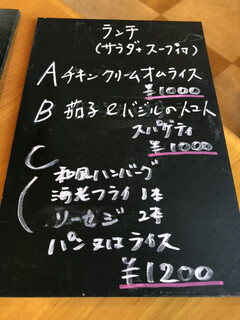 ランチ
(サラダ+スープ付)
A チキンクリームオムライス
¥1000
B 茄子とバジルのトマト
スパゲティ
¥1000
C
和風ハンバーグ
海老フライ 1本
ソーセージ 2本
パン又はライス
¥1200